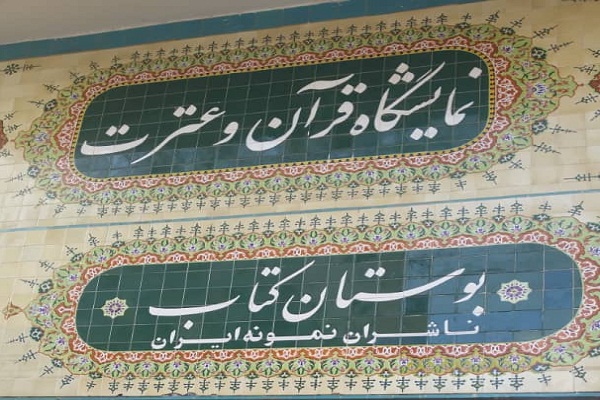 نمایشگاه قرآن و عترت
بوستان کتاب
ناشران نمونه ایران